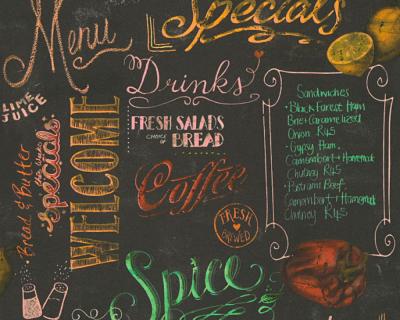 Menu
Specials
LIME
JUICE
Drinks
FRESH SALADS
CHOICE
OF
BREAD
WELCOME
Specials
Bread & Butter
Coffee
FRESH
BREWED
Spice
Sandwiches
• Black Forest Ham
Brie + Caramelized
Onion R45
• Gypsy Ham,
Camembert + Homemade
Chutney R45
• Pastrami Beef,
Camembert + Homemade
Chutney R45